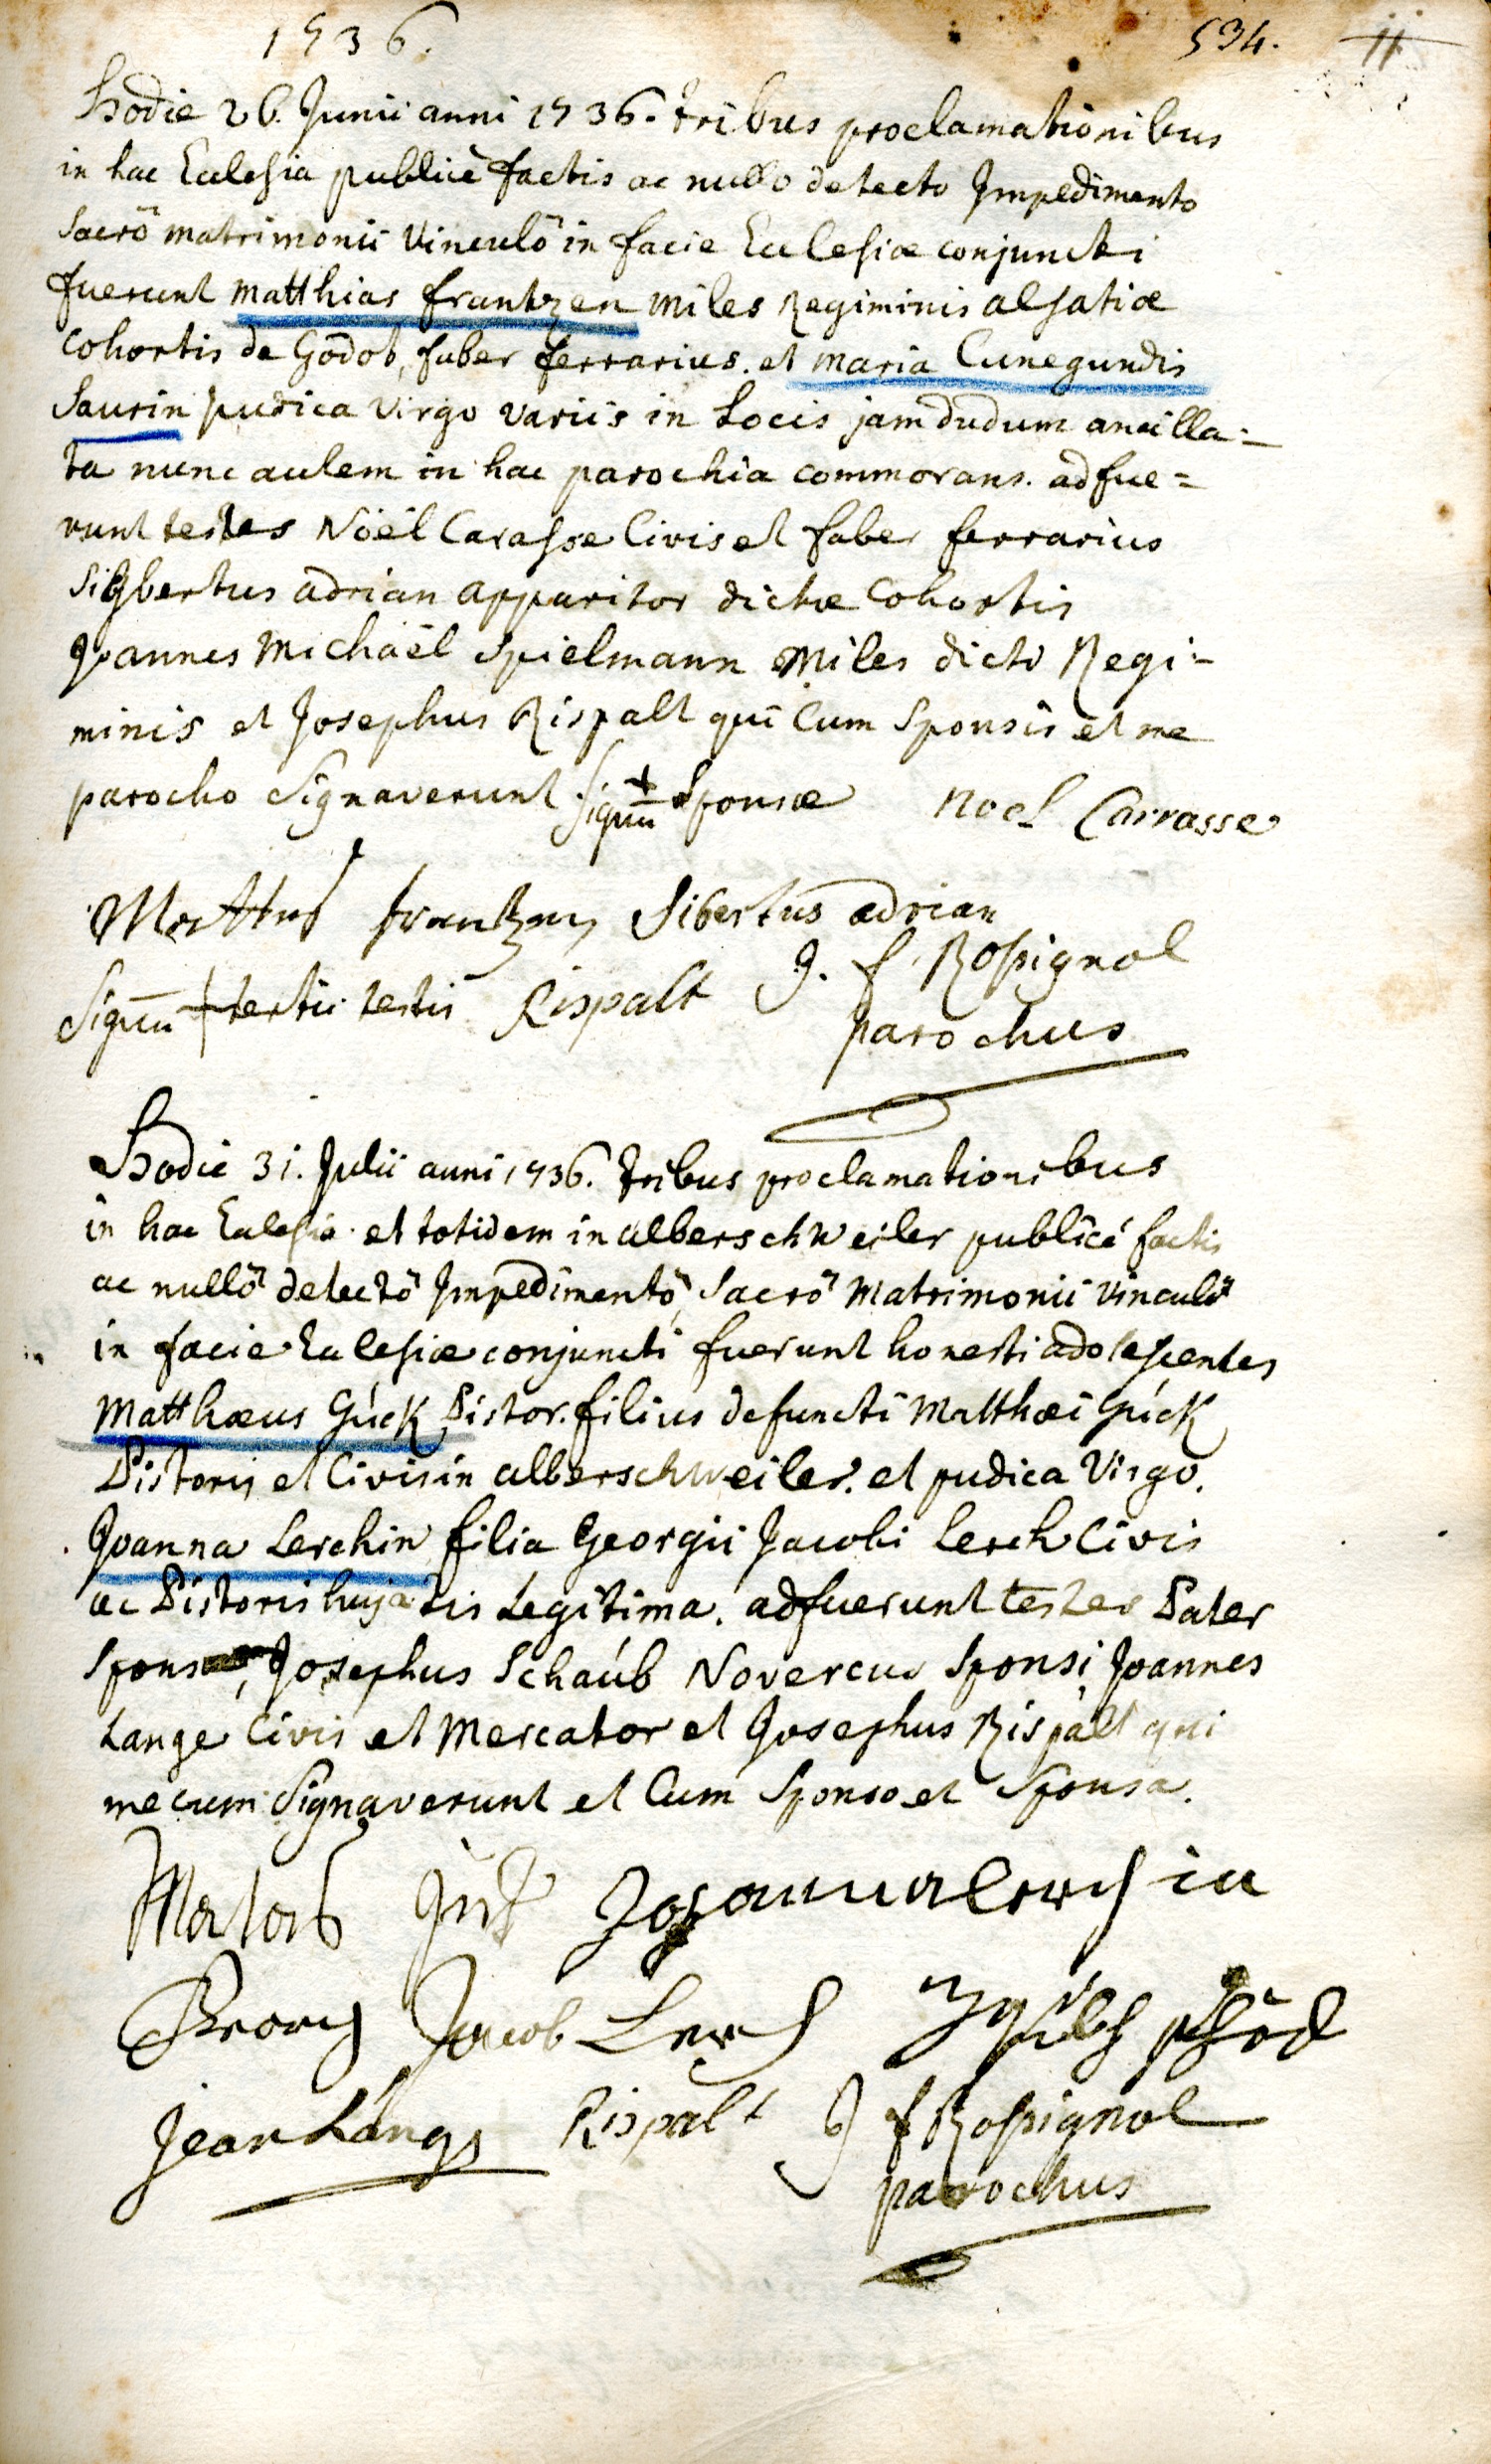 1736. 534. 11
Hodie 26. Junii anni 1736. tribus proclamationibus
in hac Ecclesia publicè factis ac nullo detecto Impedimento
Sacrô matrimonii Vinculô in facie Ecclesiæ conjuncti
fuerunt Matthias frantzen Miles Regiminis alsatiæ
Cohortis de Godob, faber ferrarius. et Maria Cunegundis
Saurin pudica Virgo variis in Locis jamdudum ancilla=
ta nunc autem in hac parochia commorans. adfue=
runt testes Noël Carasse Civis et faber ferrarius
Sigbertus adrian apparitor dictæ Cohortis
Joannes Michaël Spielmann Miles dicti Regi=
minis et Josephus Rispalt qui Cum Sponsis et me
parocho Signaverunt. Signū + Sponsæ Noel Carrasse
frantzen Sibertus adrian
Signū + tertii testis Rispalt J. f. Rossignol
parochus
Hodie 31. Julii anni 1736. tribus proclamationibus
in hac Ecclesia et totidem in alberschweiler publicé factis
ac nullô detectô Impedimentô, Sacrô Matrimonii vinculô
in facie Ecclesiæ conjuncti fuerunt honesti adolescentes
Matthæus Gück, Pistor. filius defuncti Matthæi Gück
Pistoris et Civis in alberschweiler. et pudica Virgo.
Joanna Lerchin filia Georgii Jacobi Lerch Civis
ac Pistoris hujatis Legitima. adfuerunt testes Pater
Sponsæ, Josephus Schaúb Novercus Sponsi, Joannes
Lange Civis et Mercator et Josephus Rispalt qui
mecum Signaverunt et Cum Sponso et Sponsa.
Johanna lerchin
Jacob Lerch
Jean Lange Rispalt J f Rossignol
parochus